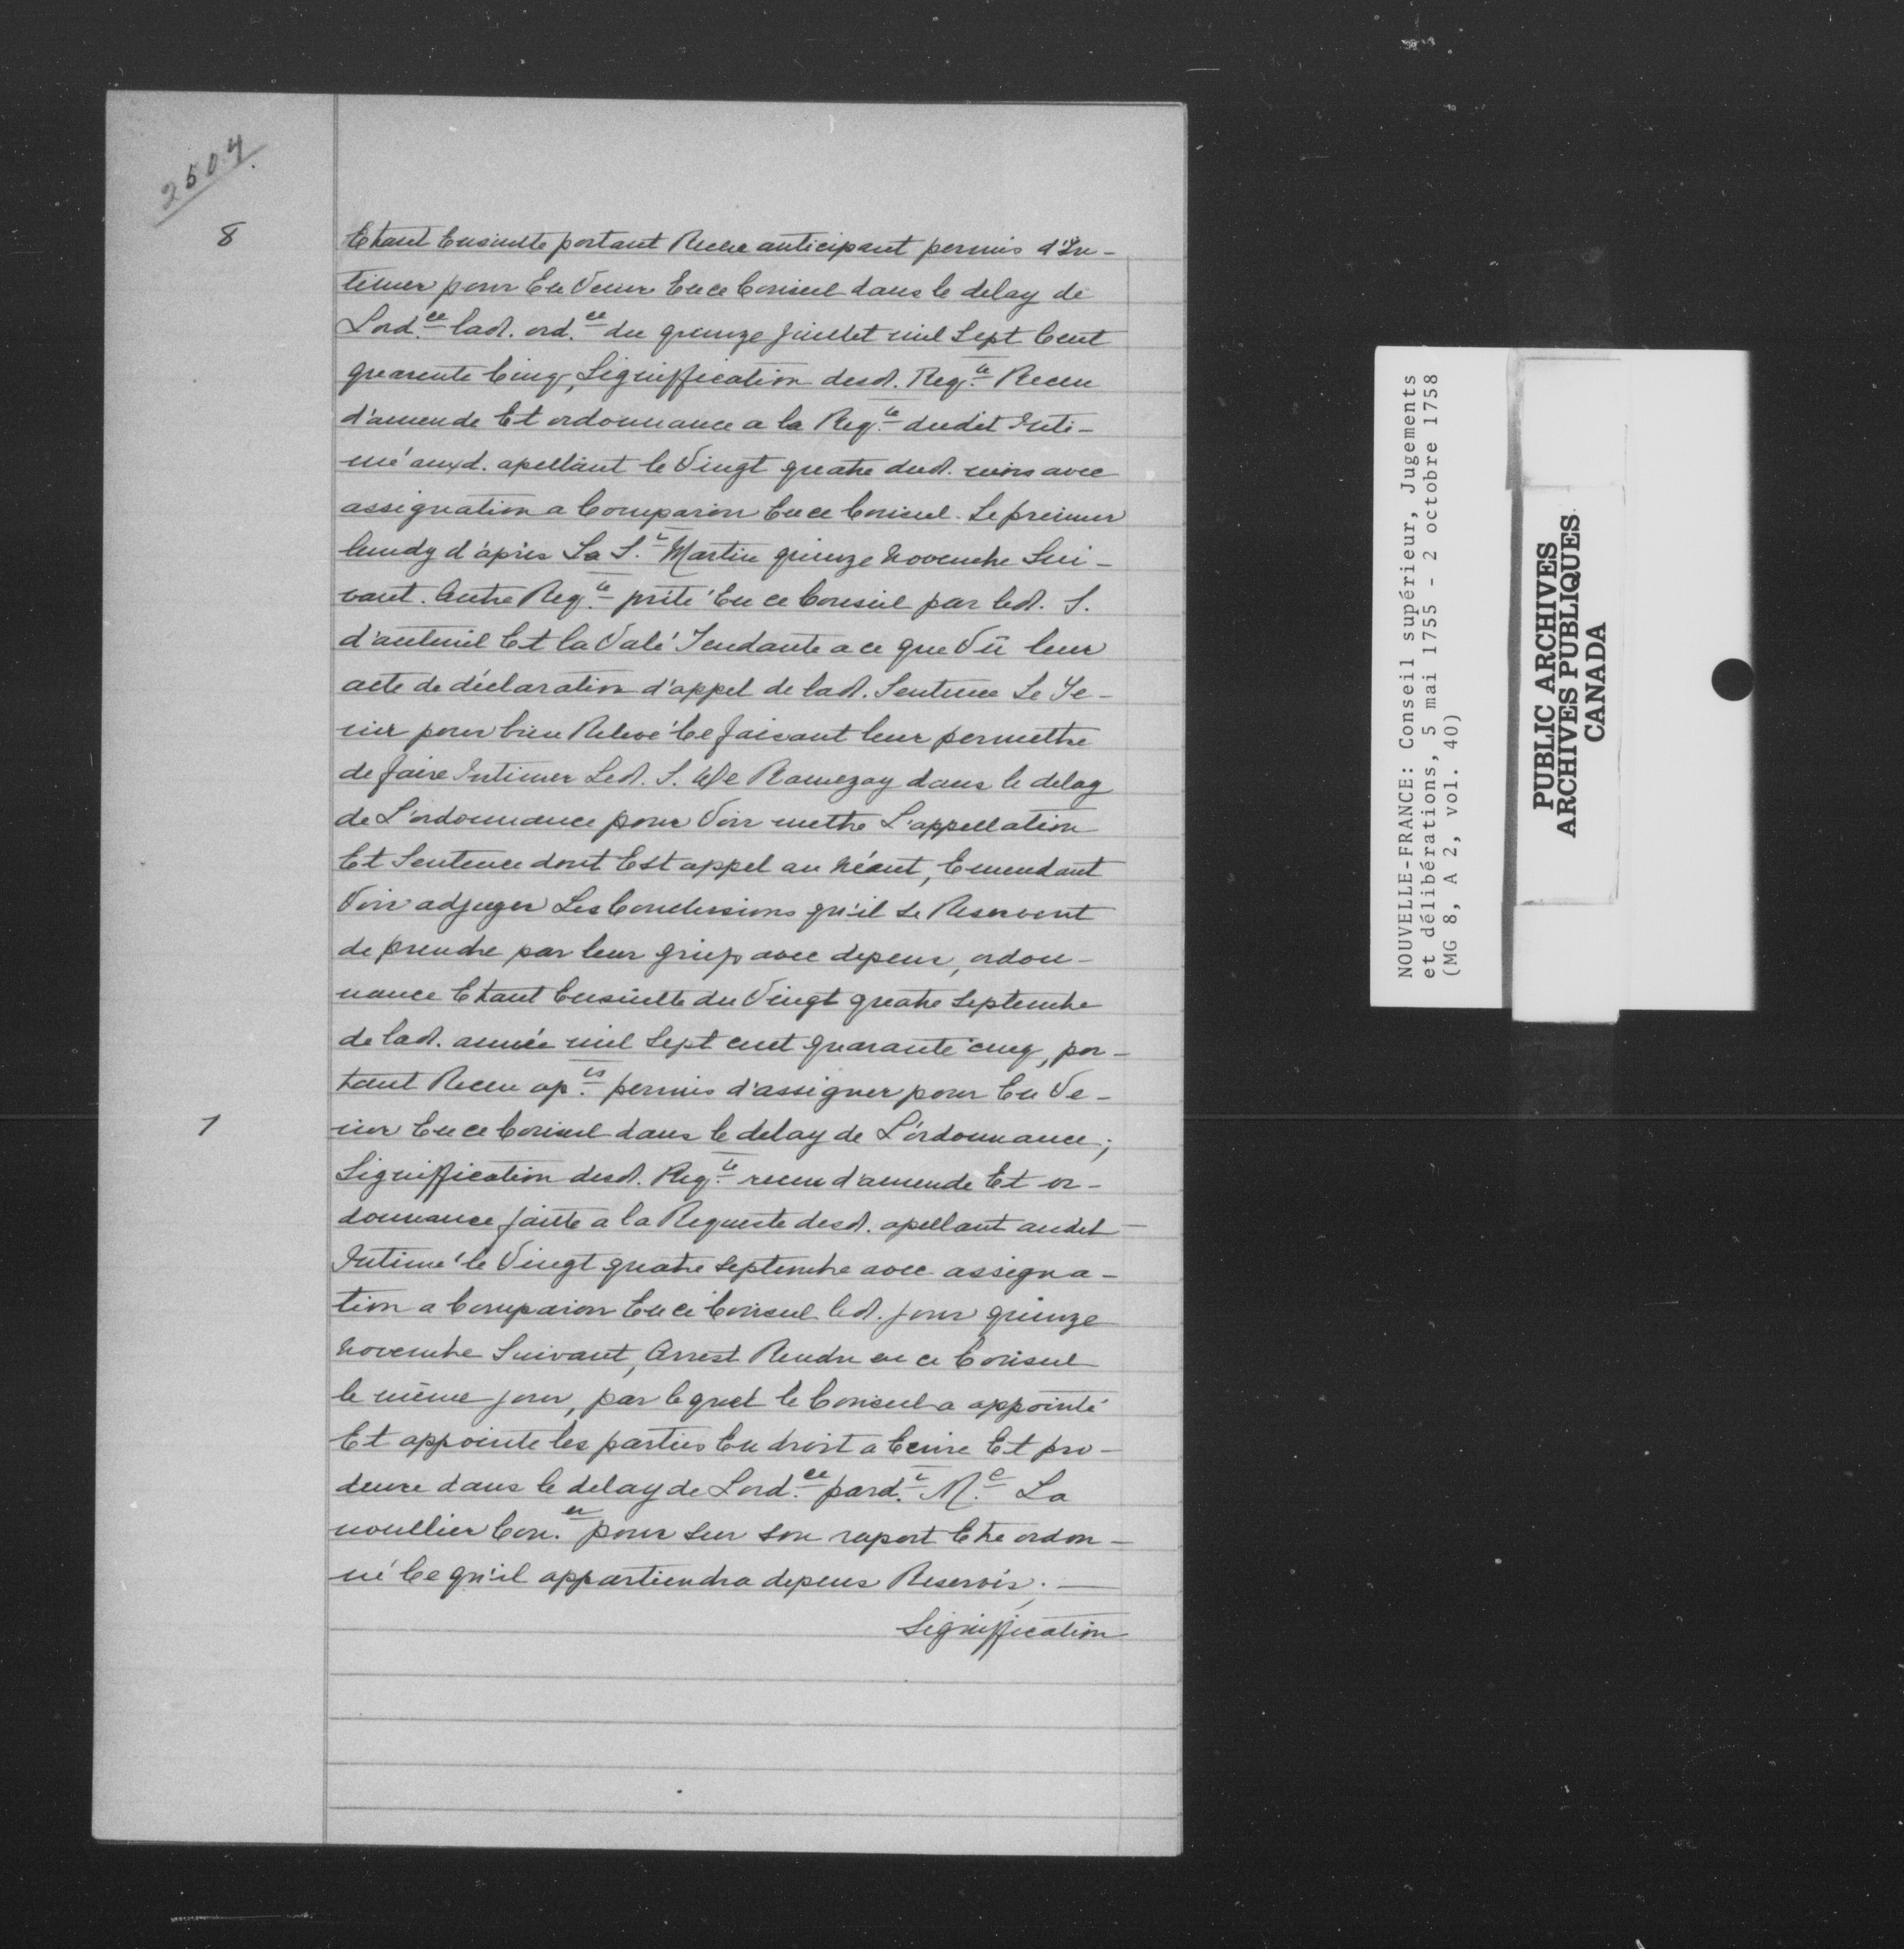 2504
8
Etant Ensuitte portant Receu anticipant permis d'In-
timer pour En Venir En ce Conseil dans le delay de
Lord.ce lad. ord.ce du quinze juillet mil Sept Cent
quarente Cinq, Signiffication desd. Reqte Receu
d'amende Et ordonnance a la Reqte dudit Inti-
mé auxd. apellant le Vingt quatre dud. mois avec
assignation a Comparoir En ce Conseil. Le premier
lundy d'après La St Martin quinze Novembre Sui-
vant. Autre Reqte prtée En ce Conseil par led. S.
d'auteuil Et la Valé Tendante a ce que Vû leur
acte de déclaration d'appel de lad. Sentence Le Te-
nir pour bien Relevé Ce faisant leur permettre
de faire Intimer Led. S. De Ramezay dans le delay
de L'ordonnance pour Voir mettre L'appellation
Et Sentence dont Est appel au Néant, Emendant
Voir adjuger Les Conclusions qu'il se Reservent
de prendre par leur griefs avec depens, ordon-
nance Etant Ensuitte du Vingt quatre Septembre
de lad. année mil Sept cent quarante cinq, por-
tant Receu ap.ts permis d'assigner pour En Ve-
7
nir En ce Conseil dans le delay de L'ordonnance;
Signiffication desd. Reqte receu d'amende Et or-
donnance faitte a la Requeste desd. apellant audit
Intimé le Vingt quatre Septembre avec assigna-
tion a Comparoir En ce Conseil led. jour quinze
Novembre Suivant, Arrest Rendu en ce Conseil
le même jour, par lequel le Conseil a appointé
Et appointe les parties En droit a Ecrire Et pro-
duire dans le delay de Lord.ce pard.t Me La
noullier Con.er pour sur son raport Etre ordon-
né Ce qu'il appartiendra depens Reservés.
Signiffication
NOUVELLE-FRANCE: Conseil supérieur, Jugements
et délibérations, 5 mai 1755 - 2 octobre 1758
(MG 8, A 2, vol. 40)
PUBLIC ARCHIVES
ARCHIVES PUBLIQUES
CANADA